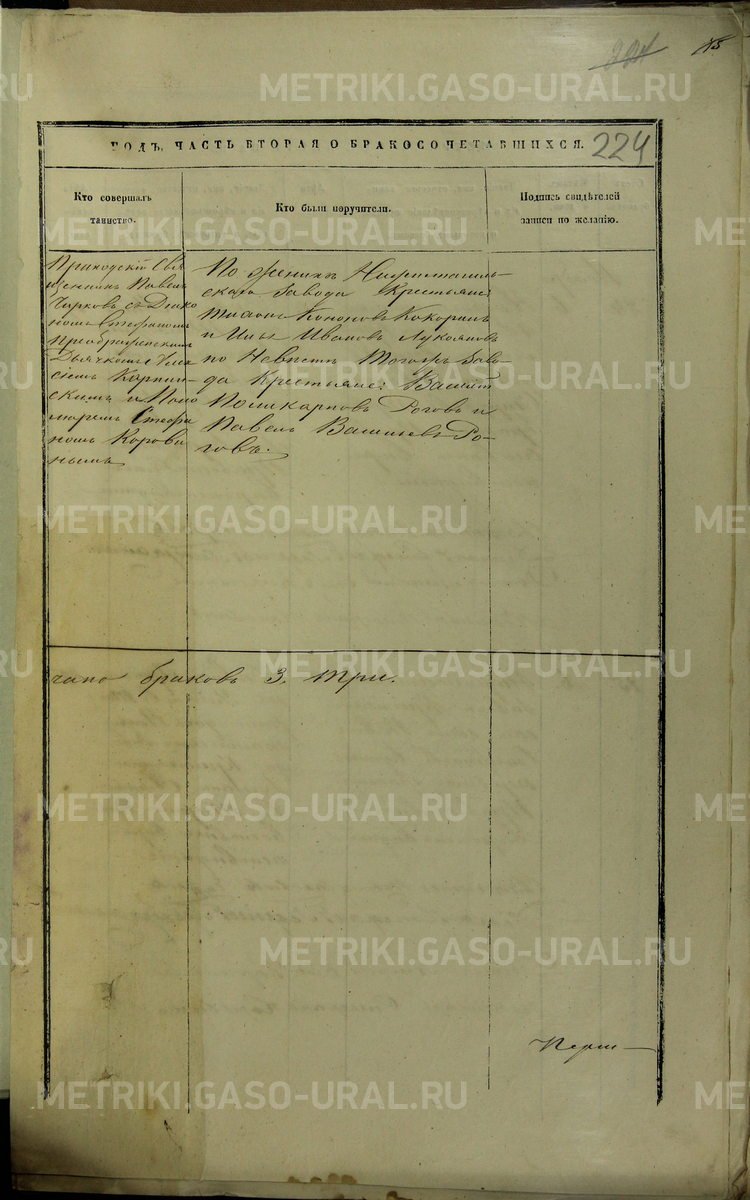 224
ГОДЪ, ЧАСТЬ ВТОРАЯ О БРАКОСОЧЕТАВШИХСЯ. 224
Кто совершалъ
таинство.
Кто были поручители.
Подпись свидѣтелей
записи по желанію.
Приходскій Свя
щенникъ Павелъ
Чирковъ съ Діако
номъ Стефаномъ
Преображенскимъ
Дьячкомъ Алек
сіемъ Карпин
скимъ и Поно
маремъ Стефа
номъ Корови
нымъ
По женихѣ Нижнетагиль-
скаго Завода Крестьяне:
Кононовъ Кокоринъ
и Илья Ивановъ Лукояновъ
по Невѣстѣ тогожъ Заво-
да Крестьяне: Василій
Поликарповъ Роговъ и
Павелъ Васильевъ Ро-
говъ.
чано браковъ 3. три.
METRIKI.GASO-URAL.RU